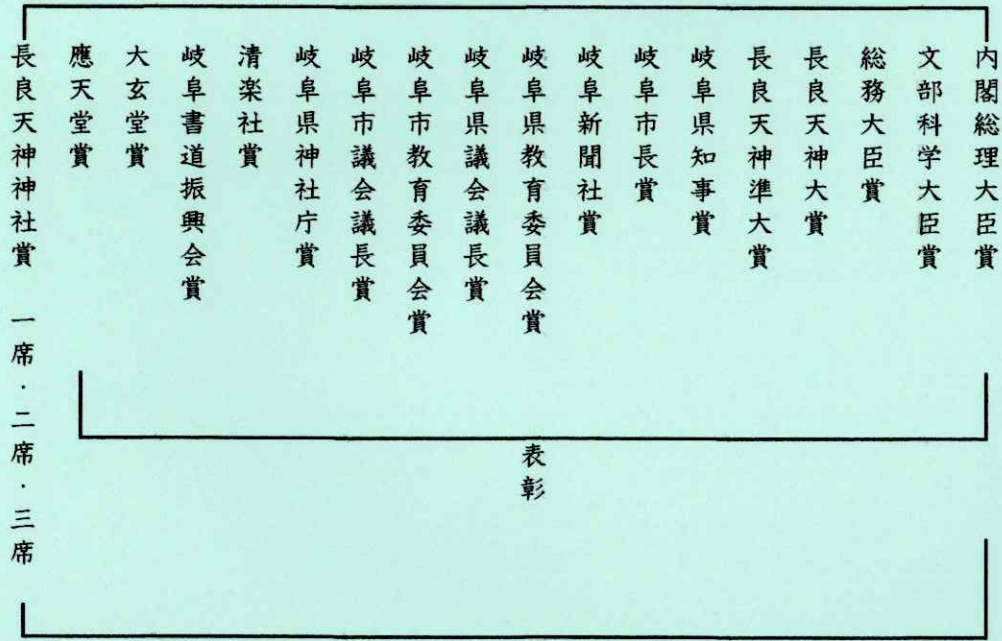 内閣総理大臣賞
文部科学大臣賞
総務大臣賞
長良天神大賞
長良天神準大賞
岐阜県知事賞
岐阜市長賞
岐阜新聞社賞
岐阜県教育委員会賞
岐阜県議会議長賞
岐阜市教育委員会賞
岐阜市議会議長賞
岐阜県神社庁賞
清楽社賞
岐阜書道振興会賞
大玄堂賞
應天堂賞
長良天神神社賞 一席・二席・三席
表彰